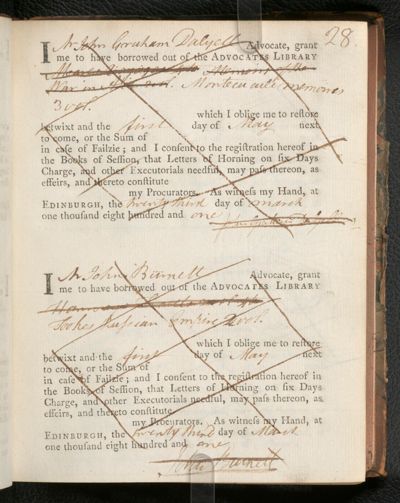 28.
I Mr John Graham Dalyell Advocate, grant
me to have borrowed out of the ADVOCATES LIBRARY
Memoirs of the
War in Montecuculi memoires
3 vol.
which I oblige me to reſtore
betwixt and the first day of May next
to come, or the Sum of
in caſe of Failzie; and I conſent to the regiſtration hereof in
the Books of Seſſion, that Letters of Horning on ſix Days
Charge, and other Executorials needful, may paſs thereon, as
effeirs, and thereto conſtitute
my Procurators. As witneſs my Hand, at
EDINBURGH, the twenty third day of March
one thouſand eight hundred and one
John Graham Dalyell
I Mr John Burnett Advocate, grant
me to have borrowed out of the ADVOCATES LIBRARY
Tookes Russian Empire 2 vol.
which I oblige me to reſtore
betwixt and the first day of May next
to come, or the Sum of
in caſe of Failzie; and I conſent to the regiſtration hereof in
the Books of Seſſion, that Letters of Horning on ſix Days
Charge, and other Executorials needful, may paſs thereon, as
effeirs, and thereto conſtitute
my Procurators. As witneſs my Hand, at
EDINBURGH, the twenty third day of March
one thouſand eight hundred and one
John Burnett